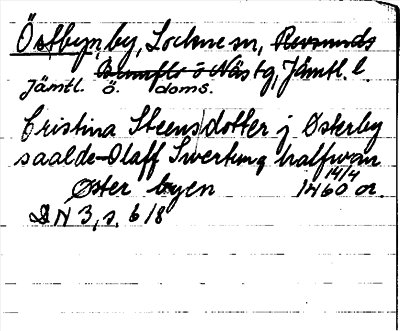 Östbyn, by, Lockne sn, Revsunds
Brunflo o Näs tg, Jämtl. l.
Jämtl. ö. doms.
Cristina Steensdotter j Østerby
saalde Olaff Swertung halfwan
Øster byen 14/4 1460 or.
DN 3, s. 618